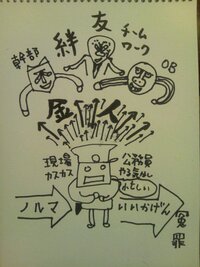 友
絆
チーム
ワーク
幹部
OB
金 人
現場
カスカス
公務員
やる気なし
ノルマ
いいかげん
冤罪